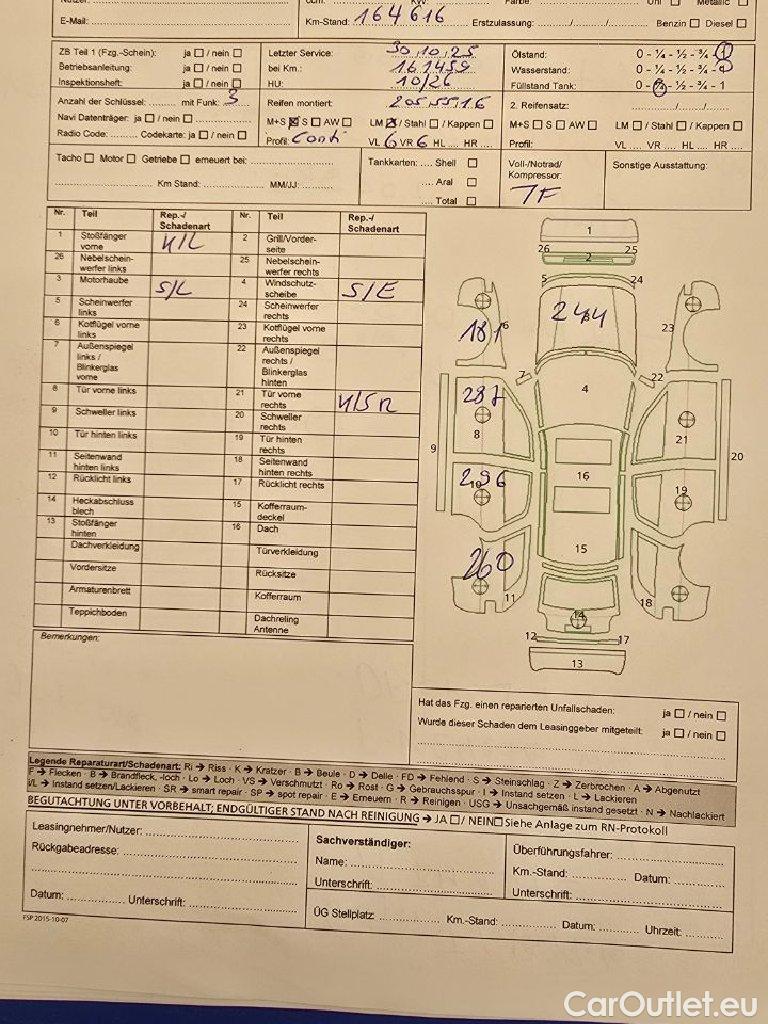 E-Mail:
Km-Stand: 164616 Erstzulassung: / /
Benzin ☐ Diesel ☐
ZB Teil 1 (Fzg.-Schein): ja ☐ / nein ☐
Betriebsanleitung: ja ☐ / nein ☐
Inspektionsheft: ja ☐ / nein ☐
Letzter Service: 30.10.25
bei Km.: 161459
HU: 10/26
Ölstand: 0 - ¼ - ½ - ¾ - 1
Wasserstand: 0 - ¼ - ½ - ¾ - 1
Füllstand Tank: 0 - ¼ - ½ - ¾ - 1
Anzahl der Schlüssel: ...... mit Funk: 3
Navi Datenträger: ja ☐ nein ☐
Radio Code: .......... Codekarte: ja ☐ / nein ☐
Reifen montiert: 205.55.16
M+S ☒ S ☐ AW ☐ LM ☒ / Stahl ☐ / Kappen ☐
Profil: Conti VL 6 VR 6 HL .... HR ....
2. Reifensatz: / /
M+S ☐ S ☐ AW ☐ LM ☐ / Stahl ☐ / Kappen ☐
Profil: VL .... VR .... HL .... HR ....
Tacho ☐ Motor ☐ Getriebe ☐ erneuert bei:
Km Stand: MM/JJ:
Tankkarten: .... Shell ☐
.... Aral ☐
.... Total ☐
Voll-/Notrad/
Kompressor:
TF
Sonstige Ausstattung:
Nr. Teil Rep.-/ Schadenart Nr. Teil Rep.-/ Schadenart
1 Stoßfänger vorne 4/L 2 Grill/Vorder- seite
26 Nebelschein- werfer links 25 Nebelschein- werfer rechts
3 Motorhaube S/L 4 Windschutz- scheibe S/E
5 Scheinwerfer links 24 Scheinwerfer rechts
6 Kotflügel vorne links 23 Kotflügel vorne rechts
7 Außenspiegel links / Blinkerglas vorne 22 Außenspiegel rechts / Blinkerglas hinten
8 Tür vorne links 21 Tür vorne rechts 4/SR
9 Schweller links 20 Schweller rechts
10 Tür hinten links 19 Tür hinten rechts
11 Seitenwand hinten links 18 Seitenwand hinten rechts
12 Rücklicht links 17 Rücklicht rechts
14 Heckabschluss blech 15 Kofferraum- deckel
13 Stoßfänger hinten 16 Dach
Dachverkleidung Türverkleidung
Vordersitze Rücksitze
Armaturenbrett Kofferraum
Teppichboden Dachreling Antenne
1
26 2 25
5 24
181 6 244 3 23
7 22
287 8 4 21
9 20
296 10 16 19
260 11 15 18
14
12 17
13
Bemerkungen:
Hat das Fzg. einen reparierten Unfallschaden: ja ☐ / nein ☐
Wurde dieser Schaden dem Leasinggeber mitgeteilt: ja ☐ / nein ☐
Legende Reparaturart/Schadenart: Ri → Riss · K → Kratzer · B → Beule · D → Delle · FD → Fehlend · S → Steinschlag · Z → Zerbrochen · A → Abgenutzt
F → Flecken · B → Brandfleck, -loch · Lo → Loch · VS → Verschmutzt · Ro → Rost · G → Gebrauchsspur · I → Instand setzen · L → Lackieren
I/L → Instand setzen/Lackieren · SR → smart repair · SP → spot repair · E → Erneuern · R → Reinigen · USG → Unsachgemäß instand gesetzt · N → Nachlackiert
BEGUTACHTUNG UNTER VORBEHALT; ENDGÜLTIGER STAND NACH REINIGUNG → JA ☐ / NEIN ☐ Siehe Anlage zum RN-Protokoll
Leasingnehmer/Nutzer:
Rückgabeadresse:
Datum: Unterschrift:
Sachverständiger:
Name:
Unterschrift:
Überführungsfahrer:
Km.-Stand: Datum:
Unterschrift:
ÜG Stellplatz: Km.-Stand: Datum: Uhrzeit:
FSP 2015-10-07
CarOutlet.eu